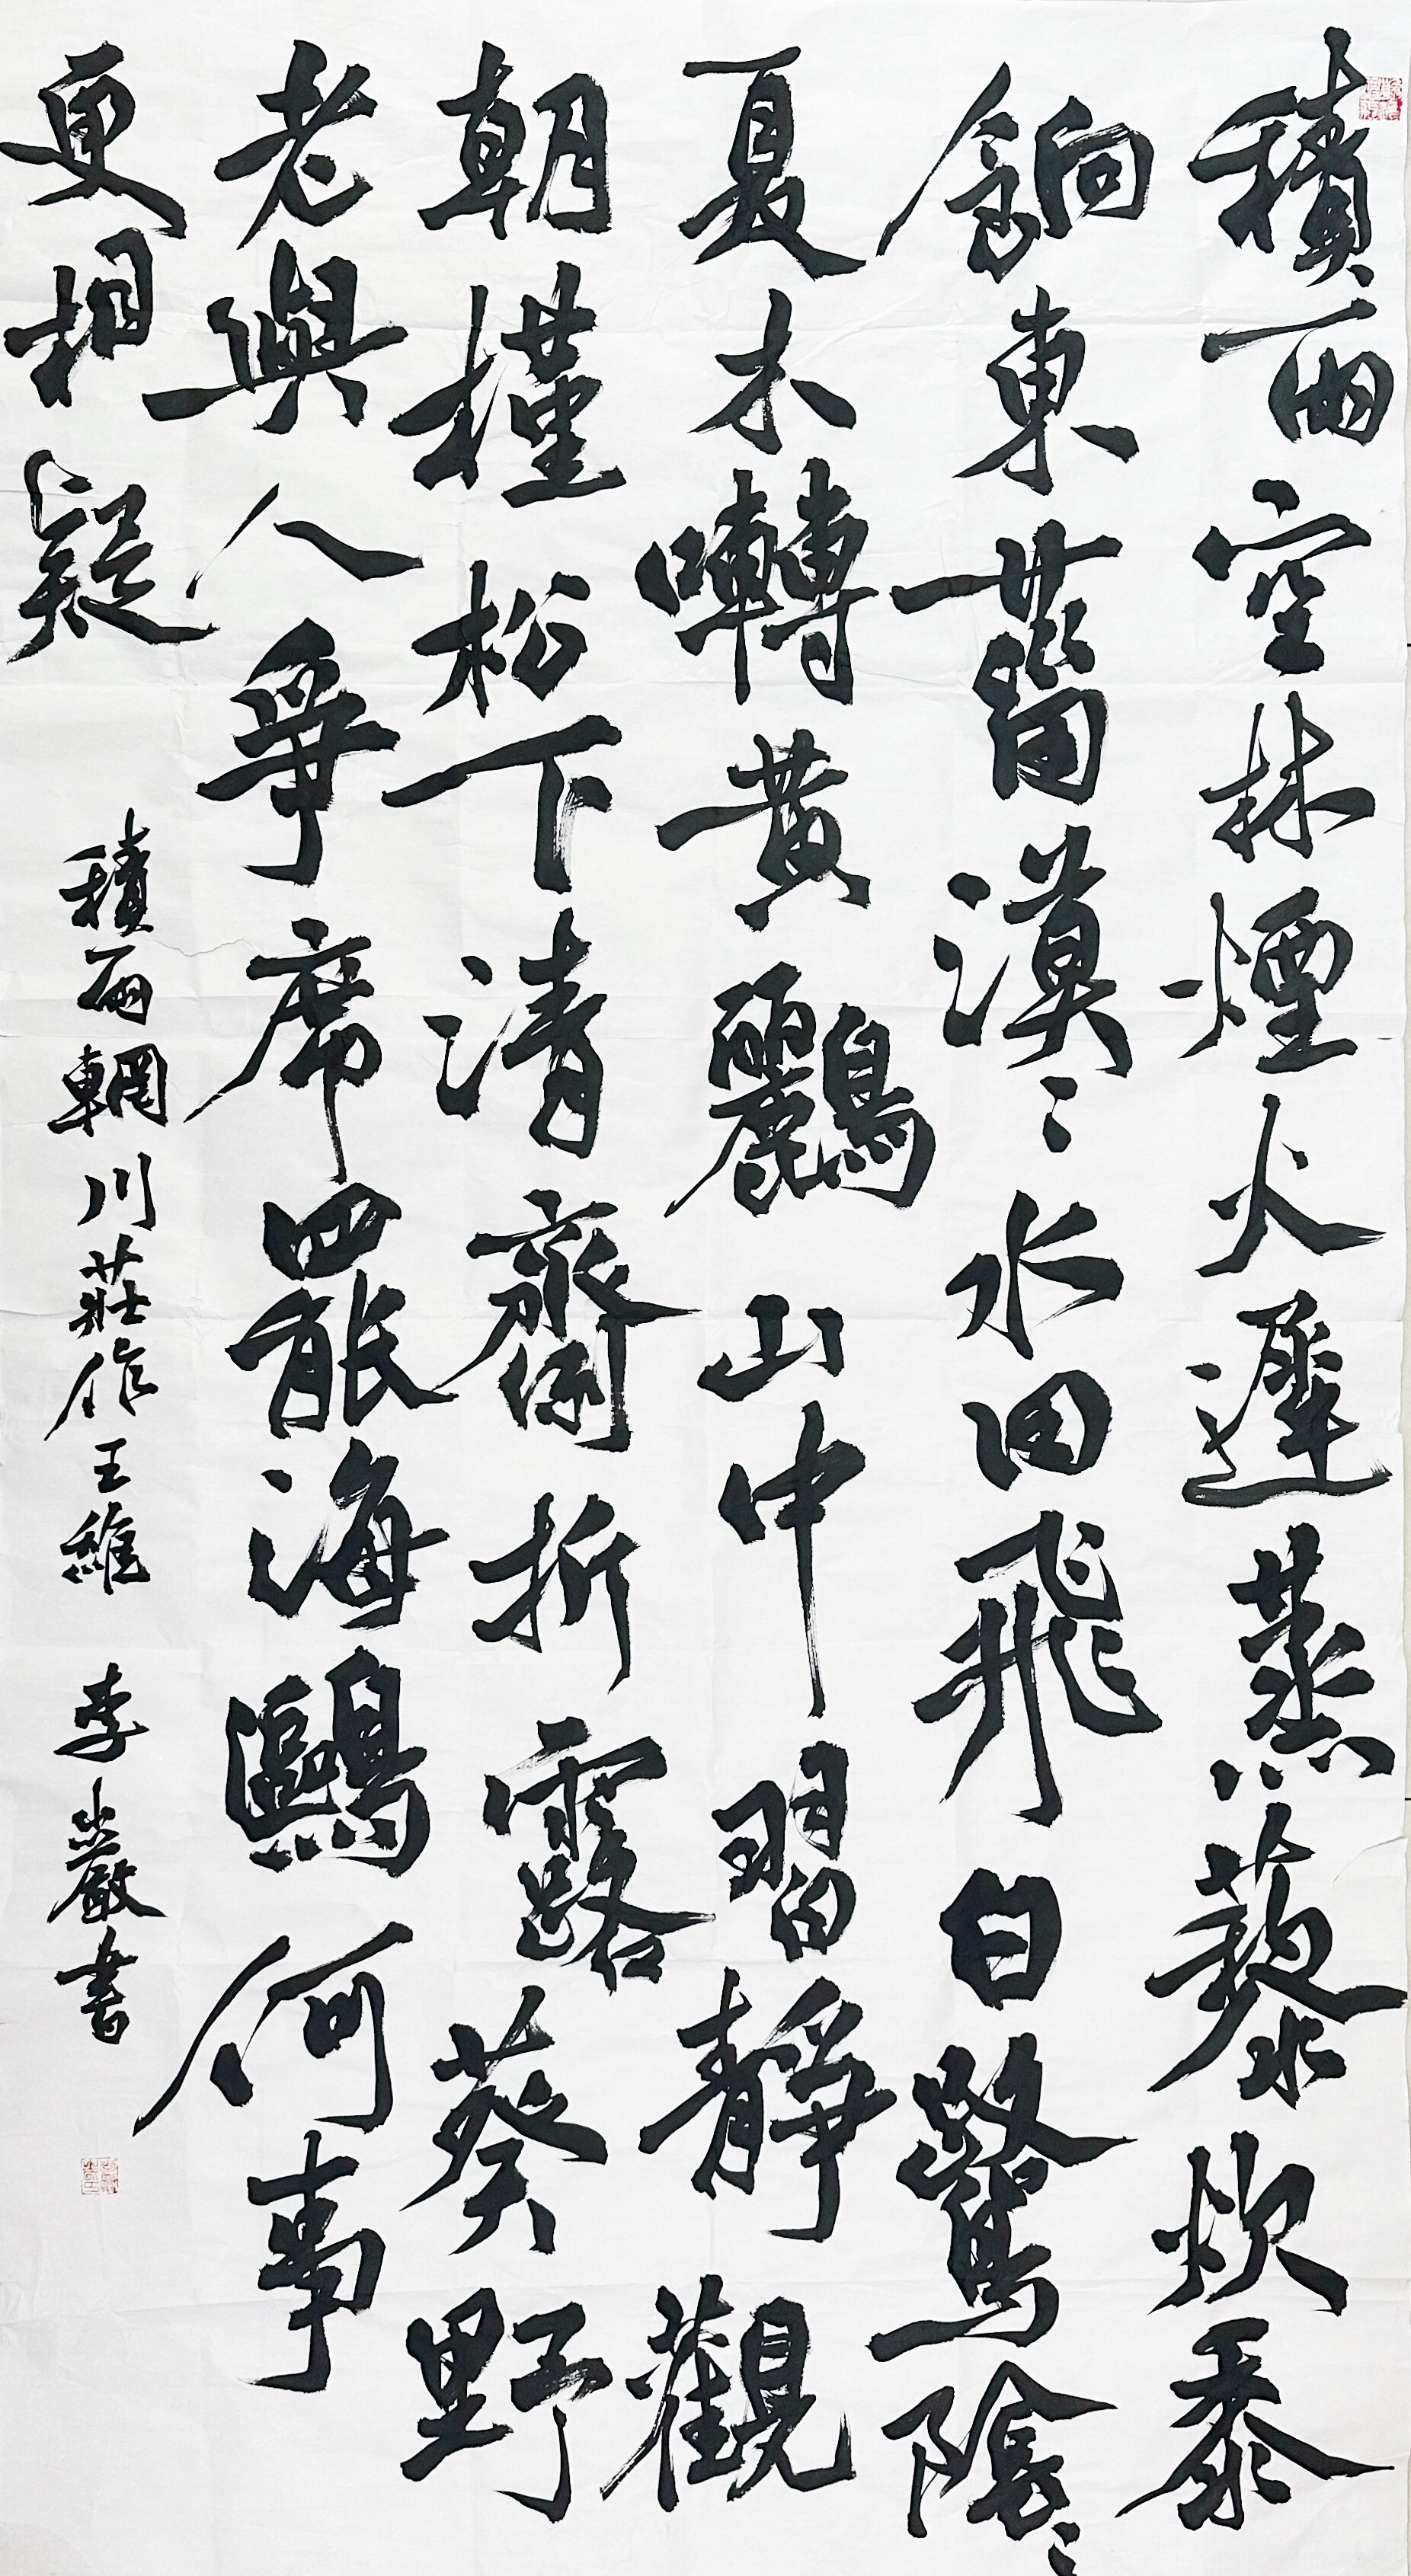 積雨空林煙火遲蒸藜炊黍
餉東菑漠〻水田飛白鷺陰〻
夏木囀黃鸝山中習靜觀
朝槿松下清齋折露葵野
老與人爭席罷海鷗何事
更相疑
積雨輞川莊作王維 李巖書